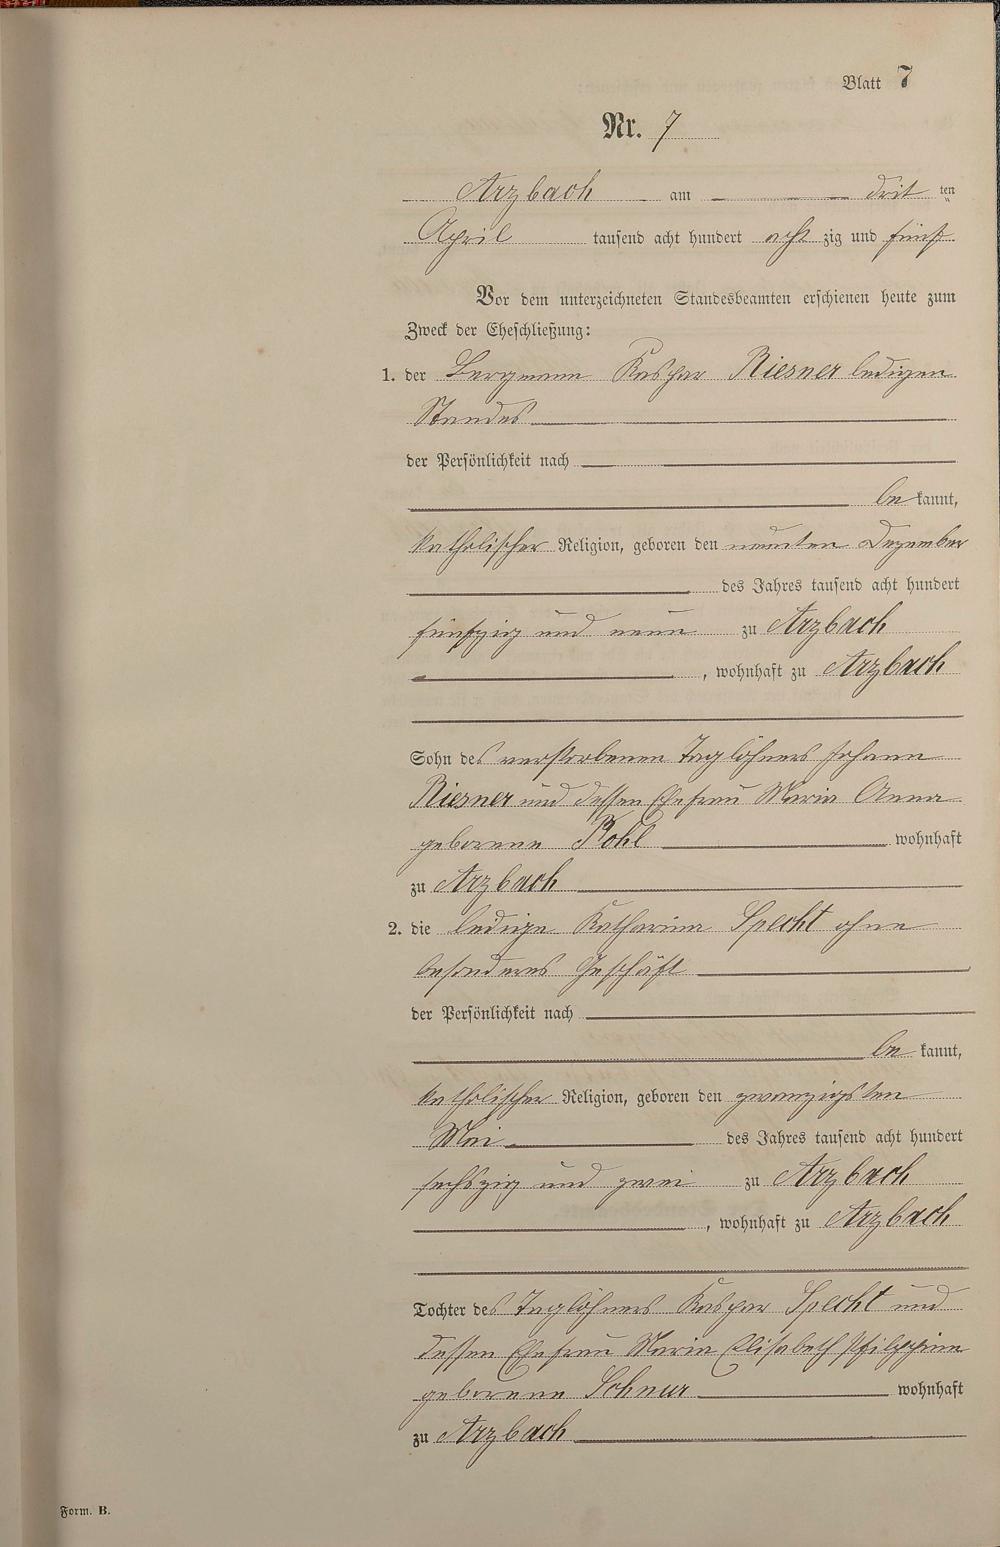 Blatt 7
Nr. 7
Arzbach am drit ten
April tausend acht hundert acht zig und fünf
Vor dem unterzeichneten Standesbeamten erschienen heute zum
Zweck der Eheschließung:
1. der Bergmann Kaspar Riesner ledigen
Standes
der Persönlichkeit nach
be kannt,
katholischer Religion, geboren den neunten Dezember
des Jahres tausend acht hundert
fünfzig und neun zu Arzbach
, wohnhaft zu Arzbach
Sohn des verstorbenen Taglöhners Johann
Riesner und dessen Ehefrau Maria Anna
geborene Pohl wohnhaft
zu Arzbach
2. die ledige Katharina Specht ohne
besonderes Geschäft
der Persönlichkeit nach
be kannt,
katholischer Religion, geboren den zwanzigsten
Mai des Jahres tausend acht hundert
sechszig und zwei zu Arzbach
, wohnhaft zu Arzbach
Tochter des Taglöhners Kaspar Specht und
dessen Ehefrau Maria Elisabeth Philippina
geborene Schnur wohnhaft
zu Arzbach
Form. B.